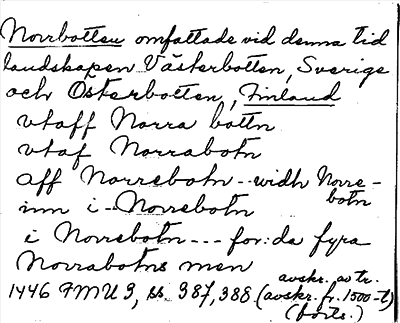 Norrbotten omfattade vid denna tid
landskapen Västerbotten, Sverige
och Österbotten, Finland
vtaff Norra bottn
vtaf Norrabotn
aff Norrebotn -- widh Norre-
botn
inn i -- Norrebotn
i Norrebotn --- for:da fyra
Norrabotns men
avskr. av tr.
1446 FMU 3, ss. 387, 388 (avskr. fr. 1500-t)
(forts.)